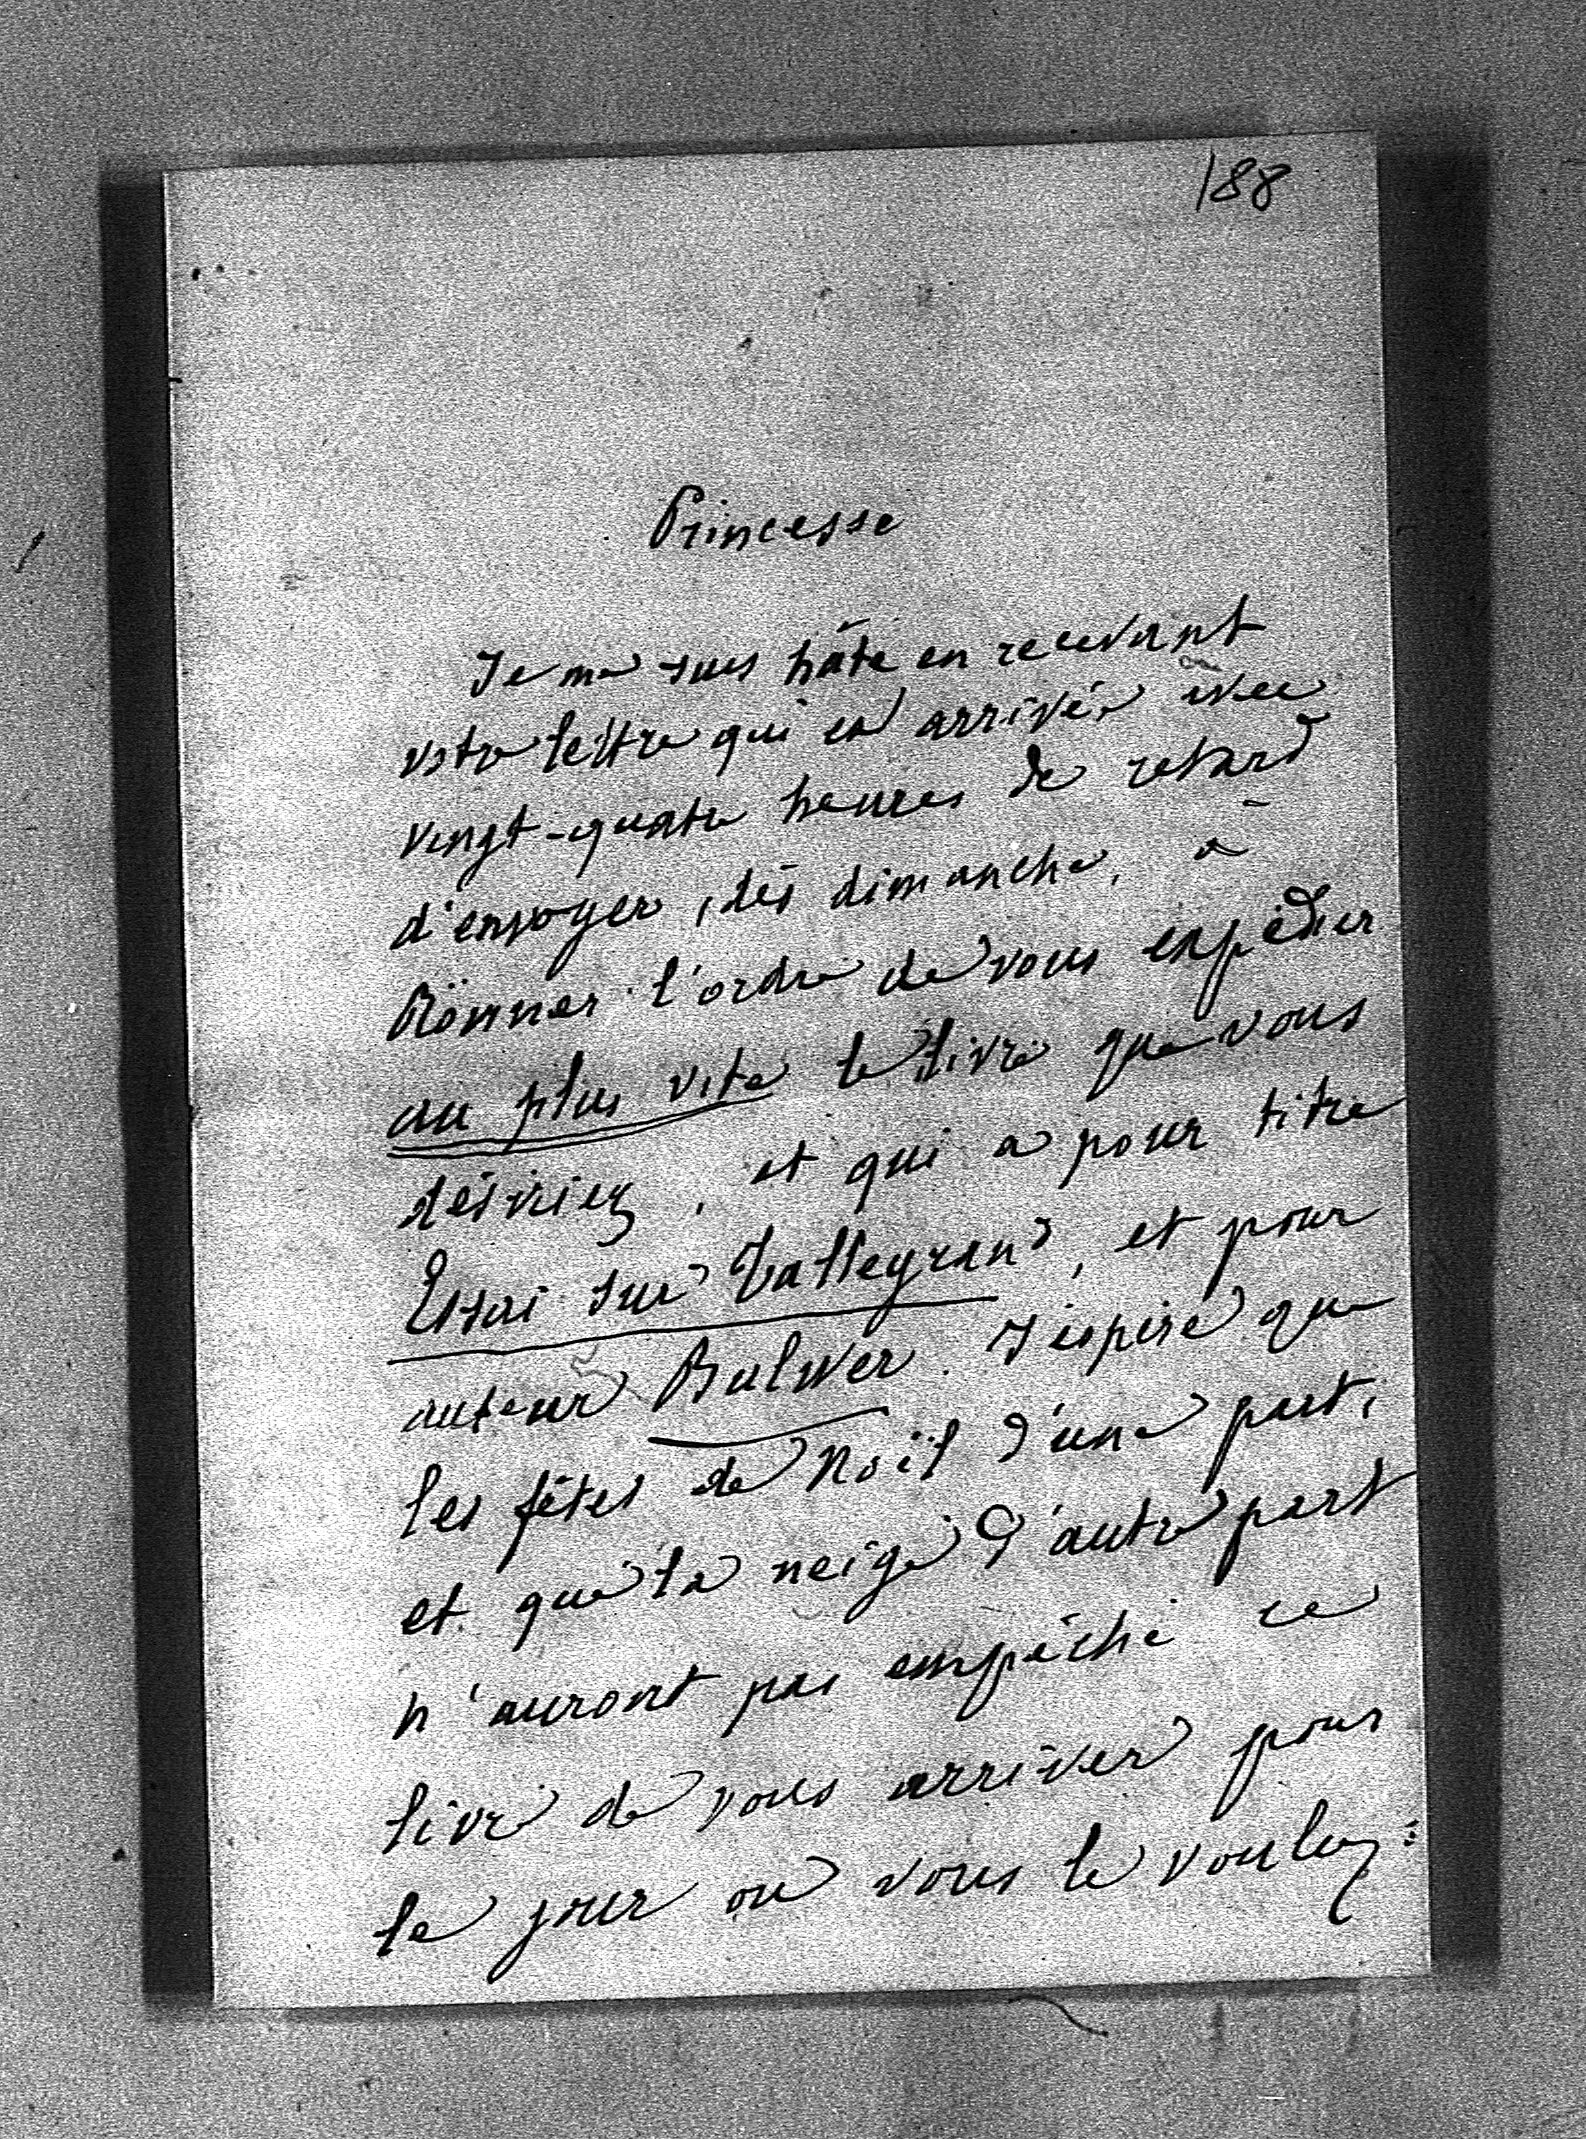 188
Princesse
Je me suis hâté en recevant
votre lettre qui est arrivée avec
vingt-quatre heures de retard
d'envoyer, dès dimanche, à
l'ordre de vous expédier
au plus vite le livre que vous
désiriez, et qui a pour titre
Essai sur Talleyrand, et pour
auteur Bulwer. J'espère que
les fêtes de Noël d'une part,
et que la neige d'autre part
n'auront pas empêché ce
livre de vous arriver pour
le jour où vous le vouliez :